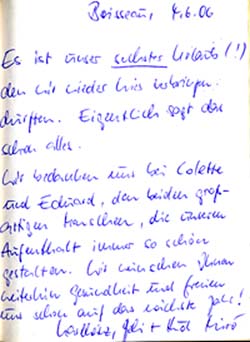 Boisseau, 4.6.06
Es ist unser sechster Urlaub (!)
den wir wieder hier verbringen
durften. Eigentlich sagt das
schon alles.
Wir bedanken uns bei Colette
und Eduard, den beiden groß-
artigen Menschen, die unseren
Aufenthalt immer so schön
gestalten. Wir wünschen ihnen
weiterhin Gesundheit und freuen
uns schon auf das nächste Jahr!